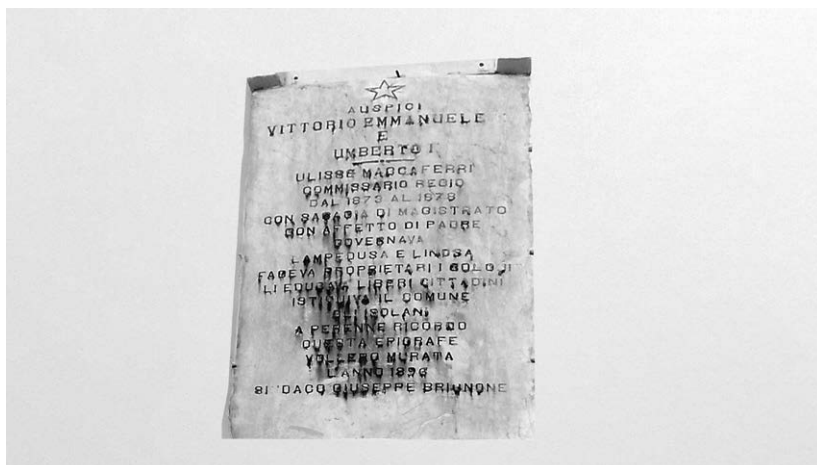 AUSPICI
VITTORIO EMMANUELE
E
UMBERTO I
ULISSE MACCAFERRI
COMMISSARIO REGIO
DAL 1873 AL 1878
CON SAGACIA DI MAGISTRATO
CON AFFETTO DI PADRE
GOVERNAVA
LAMPEDUSA E LINOSA
FACEVA PROPRIETARI I COLO I
LI EDUCAVA LIBERI CITTADINI
ISTITUIVA IL COMUNE
GLI ISOLANI
A PERENNE RICORDO
QUESTA EPIGRAFE
VOLLERO MURATA
L'ANNO 1896
SI DACO GIUSEPPE BRIGNONE